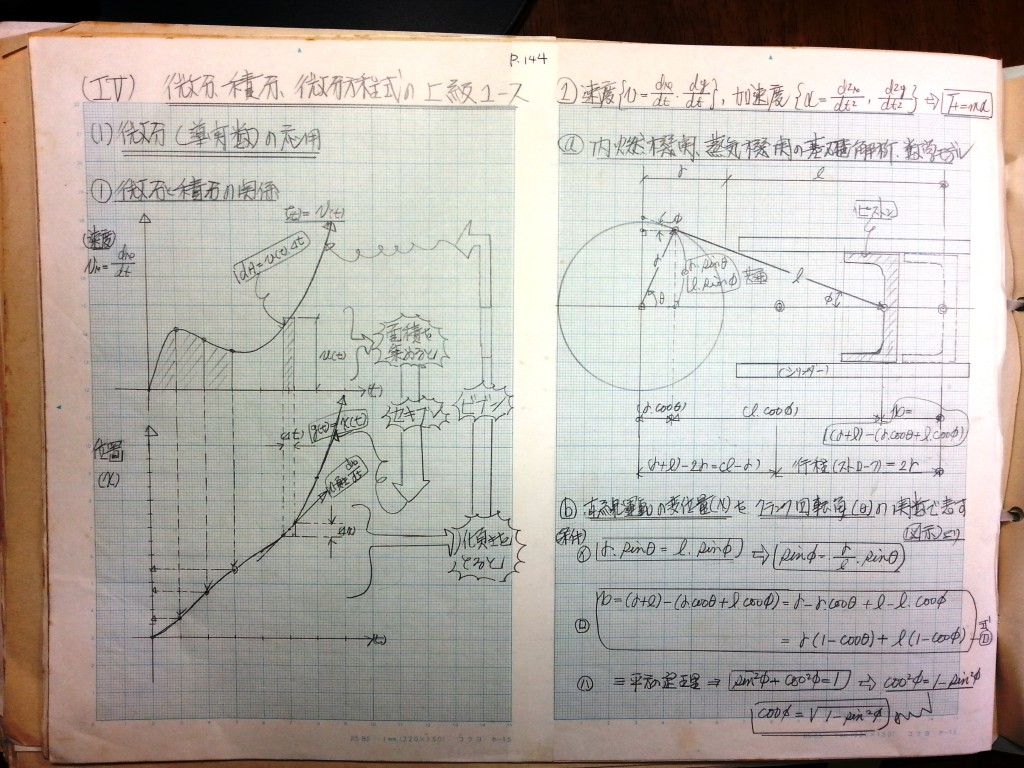 P.144
(IV) 微分・積分、微分方程式の上級コース
(1) 微分(導関数)の応用
① 微分と積分の関係
f(t)=v(t)
(速度)
dA=v(t)·Δt
v(t)
(t)
面積を
集めると
セキブン
ビブン
位置
(x)
(Δt)
g(t)=x(t)
(t)
傾きを
とると
② 速度{v=dx/dt・dy/dt}, 加速度{α=d²x/dt², d²y/dt²} ⇒ F=mα
ⓐ 内燃機関、蒸気機関の基礎解析、数学モデル
r
l
ピストン
r
r·sinθ
l·sinφ
共通
l
θ
φ
(シリンダー)
(r·cosθ)
(l·cosφ)
x=
(r+l)-(r·cosθ+l·cosφ)
(r+l)-2r=(l-r)
行程(ストローク)=2r
ⓑ 直線運動の変位量(x)を クランク回転角(θ)の関数で表す
(図示)より
条件
㋑ r·sinθ=l·sinφ ⇒ sinφ=r/l·sinθ
㋺ x=(r+l)-(r·cosθ+l·cosφ)=r-r·cosθ+l-l·cosφ
=r(1-cosθ)+l(1-cosφ)
式
㋩ 三平方の定理 ⇒ sin²φ+cos²φ=1 ⇒ cos²φ=1-sin²φ
cosφ=√1-sin²φ